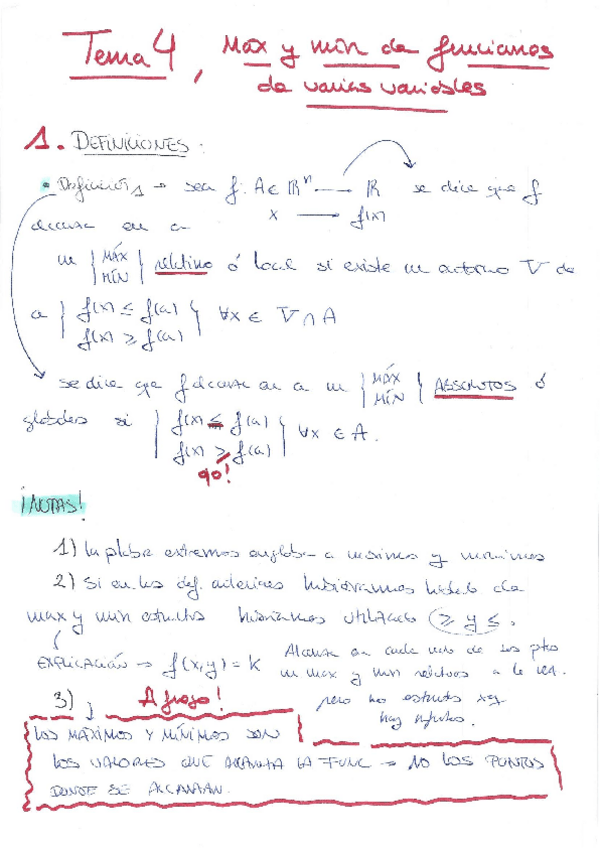 Tema 4, Max y min de funciones
de varias variables
1. DEFINICIONES.
• Definición 1 → sea f: A ∈ ℝⁿ → ℝ se dice que f
x → f(x)
alcanza en a
un { MÁX MÍN } relativo ó local si existe un entorno V de
a { f(x) ≤ f(a) f(x) ≥ f(a) } ∀x ∈ V ∩ A
se dice que f alcanza en a un { MÁX MÍN } ABSOLUTOS ó
globales si { f(x) ≤ f(a) f(x) ≥ f(a) } ∀x ∈ A.
ojo!
¡NOTAS!
1) La palabra extremos engloba a máximos y mínimos
2) Si en las def. anteriores hubiéramos hablado de
max y min estrictos hubiéramos utilizado
EXPLICACIÓN → f(x,y) = K Alcanza en cada uno de los ptos
un max y min relativos a la vez.
pero no estrictos xq
hay infinitos.
3) A fuego!
LOS MÁXIMOS Y MÍNIMOS SON
LOS VALORES QUE ALCANZA LA FUNC → NO LOS PUNTOS
DONDE SE ALCANZAN.